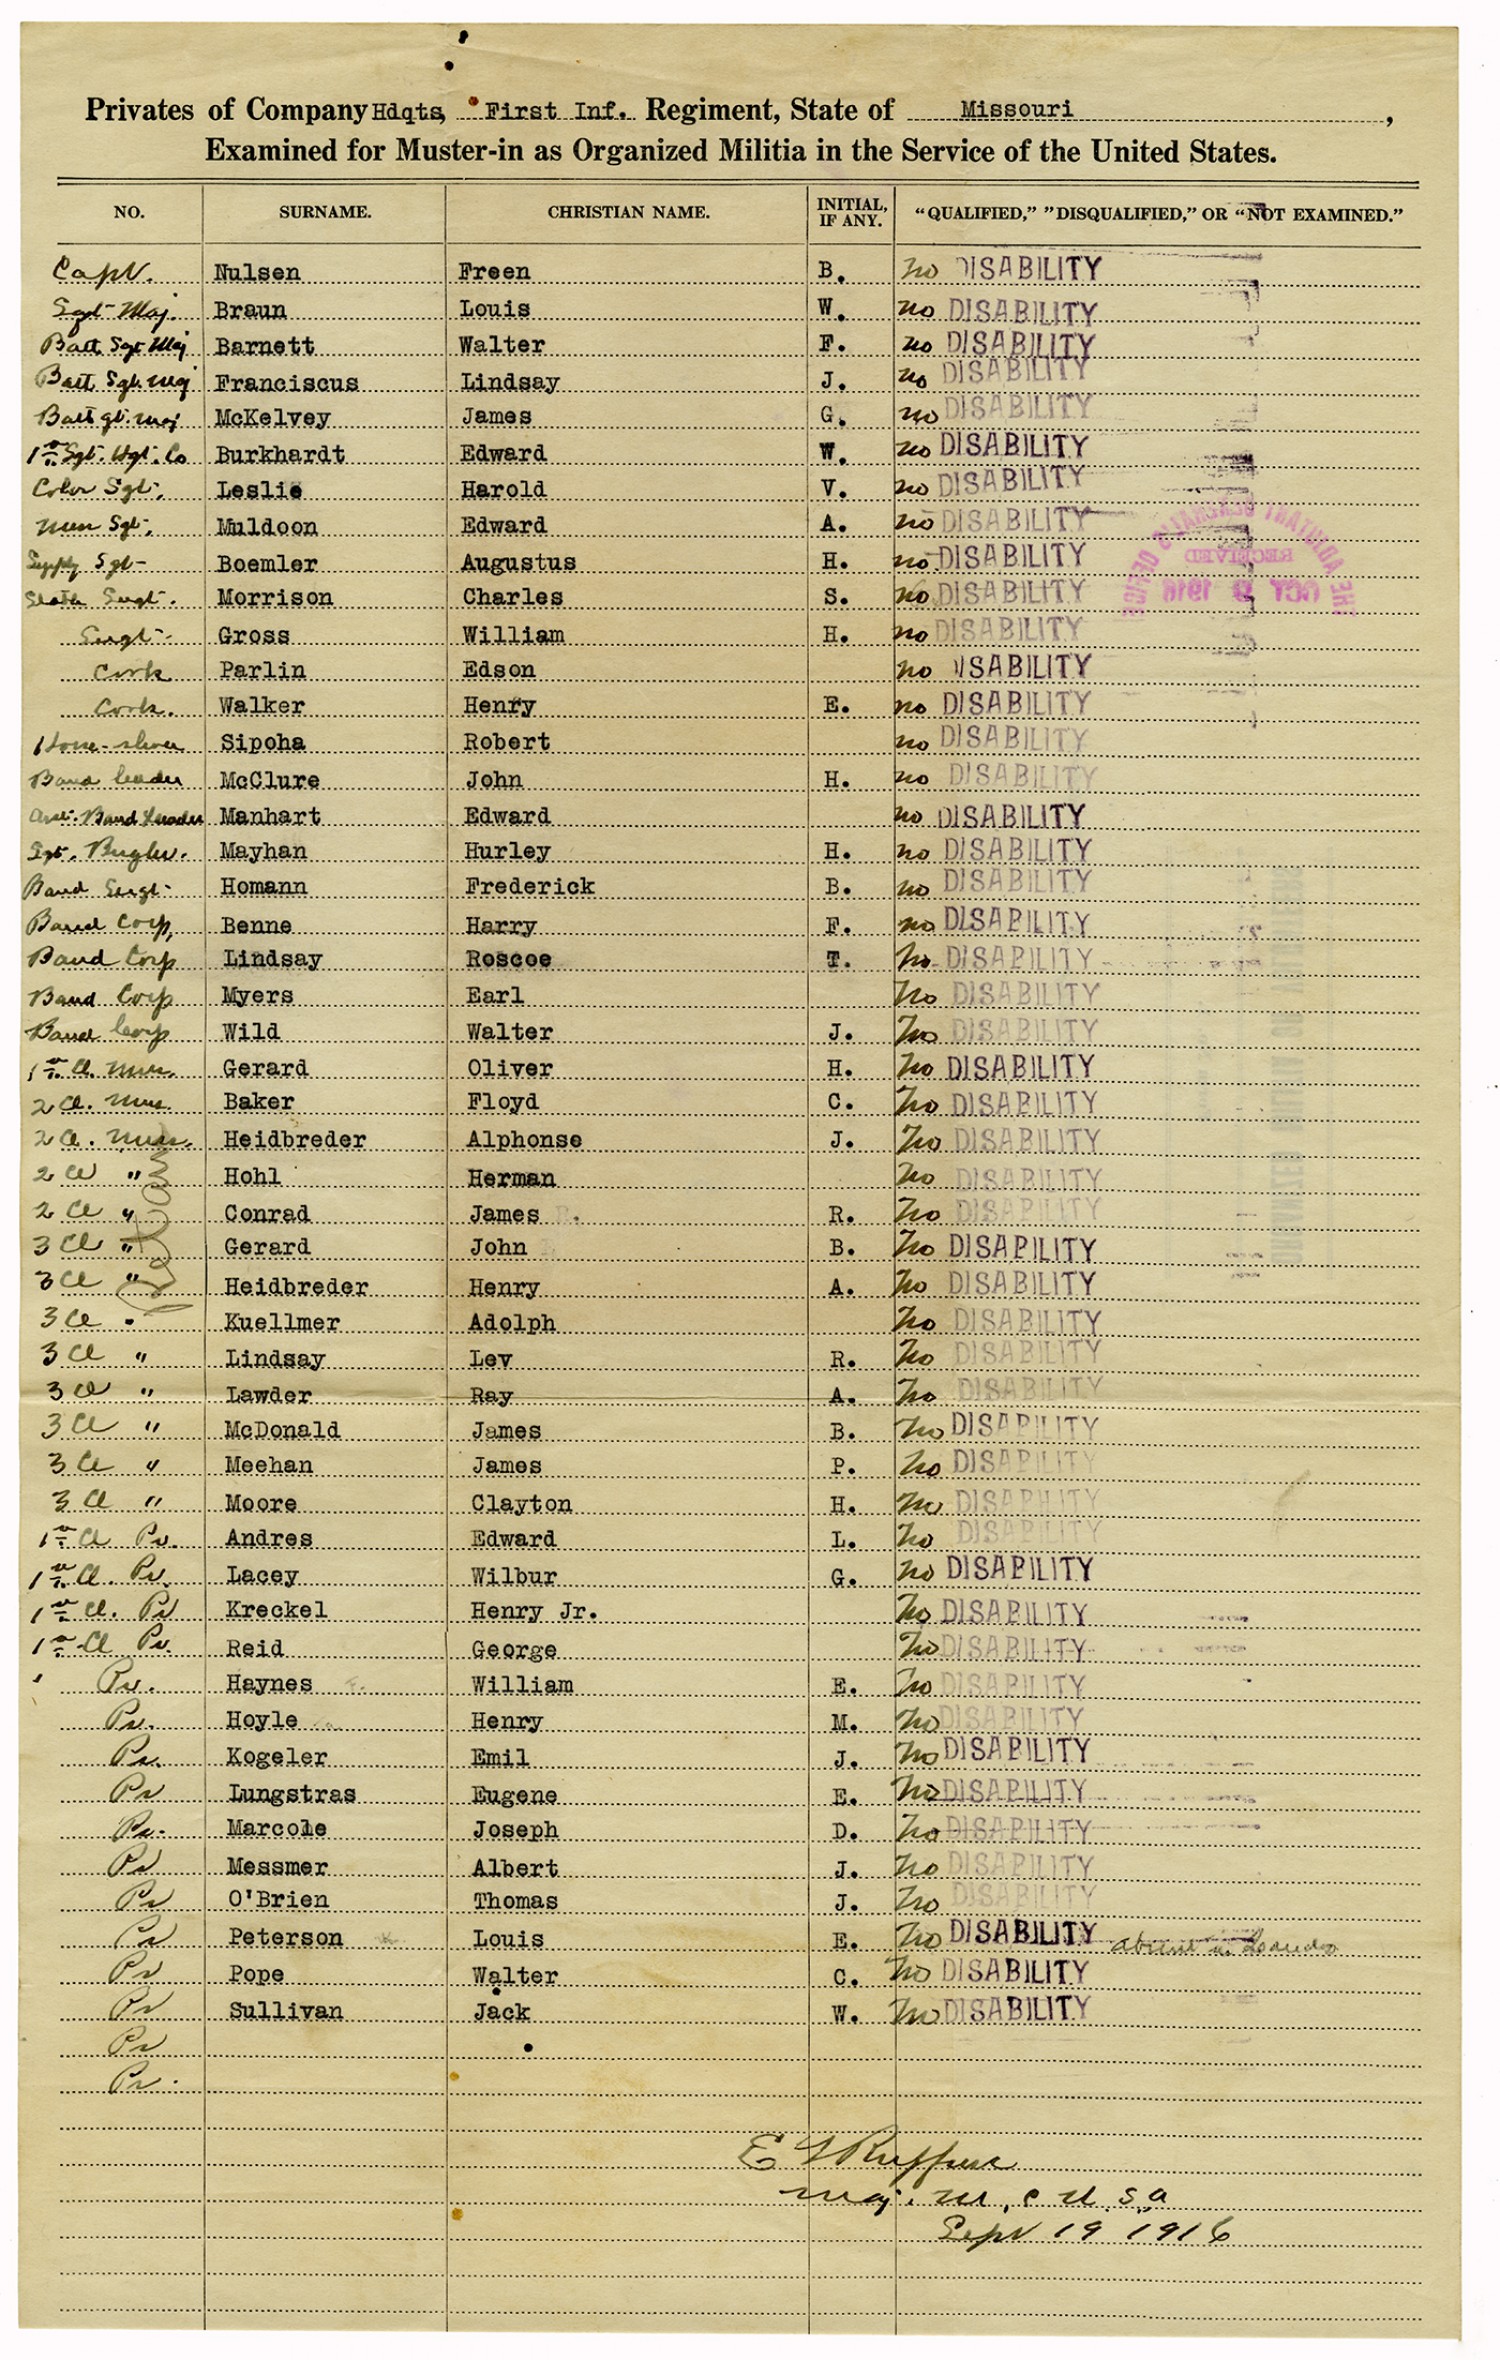 Privates of Company Hdqts, First Inf. Regiment, State of Missouri,
Examined for Muster-in as Organized Militia in the Service of the United States.
NO. SURNAME. CHRISTIAN NAME. INITIAL, IF ANY. "QUALIFIED," "DISQUALIFIED," OR "NOT EXAMINED."
Capt. Nulsen Freen B. no DISABILITY
Sgt-Maj. Braun Louis W. no DISABILITY
Batt Sgt Maj Barnett Walter F. no DISABILITY
Batt Sgt. Maj Franciscus Lindsay J. no DISABILITY
McKelvey James G. no DISABILITY
1st Sgt. Hqt. Co Burkhardt Edward W. no DISABILITY
Color Sgt. Leslie Harold V. no DISABILITY
Mess Sgt. Muldoon Edward A. no DISABILITY
Supply Sgt- Boemler Augustus H. no DISABILITY
Stable Sergt. Morrison Charles S. no DISABILITY
Sergt- Gross William H. no DISABILITY
Cook Parlin Edson no DISABILITY
Cook. Walker Henry E. no DISABILITY
Horse-shoer Sipoha Robert no DISABILITY
Band leader McClure John H. no DISABILITY
Asst. Band Leader Manhart Edward no DISABILITY
Sgt. Bugler. Mayhan Hurley H. no DISABILITY
Band Sergt- Homann Frederick B. no DISABILITY
Band Corp, Benne Harry F. no DISABILITY
Band Corp Lindsay Roscoe T. No DISABILITY
Band Corp Myers Earl No DISABILITY
Band Corp Wild Walter J. No DISABILITY
1st Cl. Mus. Gerard Oliver H. No DISABILITY
2 Cl. Mus. Baker Floyd C. No DISABILITY
2 Cl. Mus. Heidbreder Alphonse J. No DISABILITY
2 Cl " Hohl Herman No DISABILITY
2 Cl " Conrad James R. No DISABILITY
3 Cl " Gerard John B. No DISABILITY
3 Cl " Heidbreder Henry A. No DISABILITY
3 Cl " Kuellmer Adolph No DISABILITY
3 Cl " Lindsay Lev R. No DISABILITY
3 Cl " Lawder Ray A. No DISABILITY
3 Cl " McDonald James B. No DISABILITY
3 Cl " Meehan James P. No DISABILITY
3 Cl " Moore Clayton H. No DISABILITY
1st Cl Pv. Andres Edward L. No DISABILITY
1st Cl. Pv. Lacey Wilbur G. No DISABILITY
1st Cl. Pv Kreckel Henry Jr. No DISABILITY
1st Cl Pv. Reid George No DISABILITY
Pv. Haynes William E. No DISABILITY
Pv. Hoyle Henry M. No DISABILITY
Pv. Kogeler Emil J. No DISABILITY
Pv Lungstras Eugene E. No DISABILITY
Pv. Marcole Joseph D. No DISABILITY
Pv Messmer Albert J. No DISABILITY
Pv O'Brien Thomas J. No DISABILITY
Pv Peterson Louis E. No DISABILITY
Pv Pope Walter C. No DISABILITY
Pv Sullivan Jack W. No DISABILITY
Pv
Pv.
Maj. M. C. U.S.A
Sept 19 1916
THE ADJUTANT GENERAL'S OFFICE
RECEIVED
Band